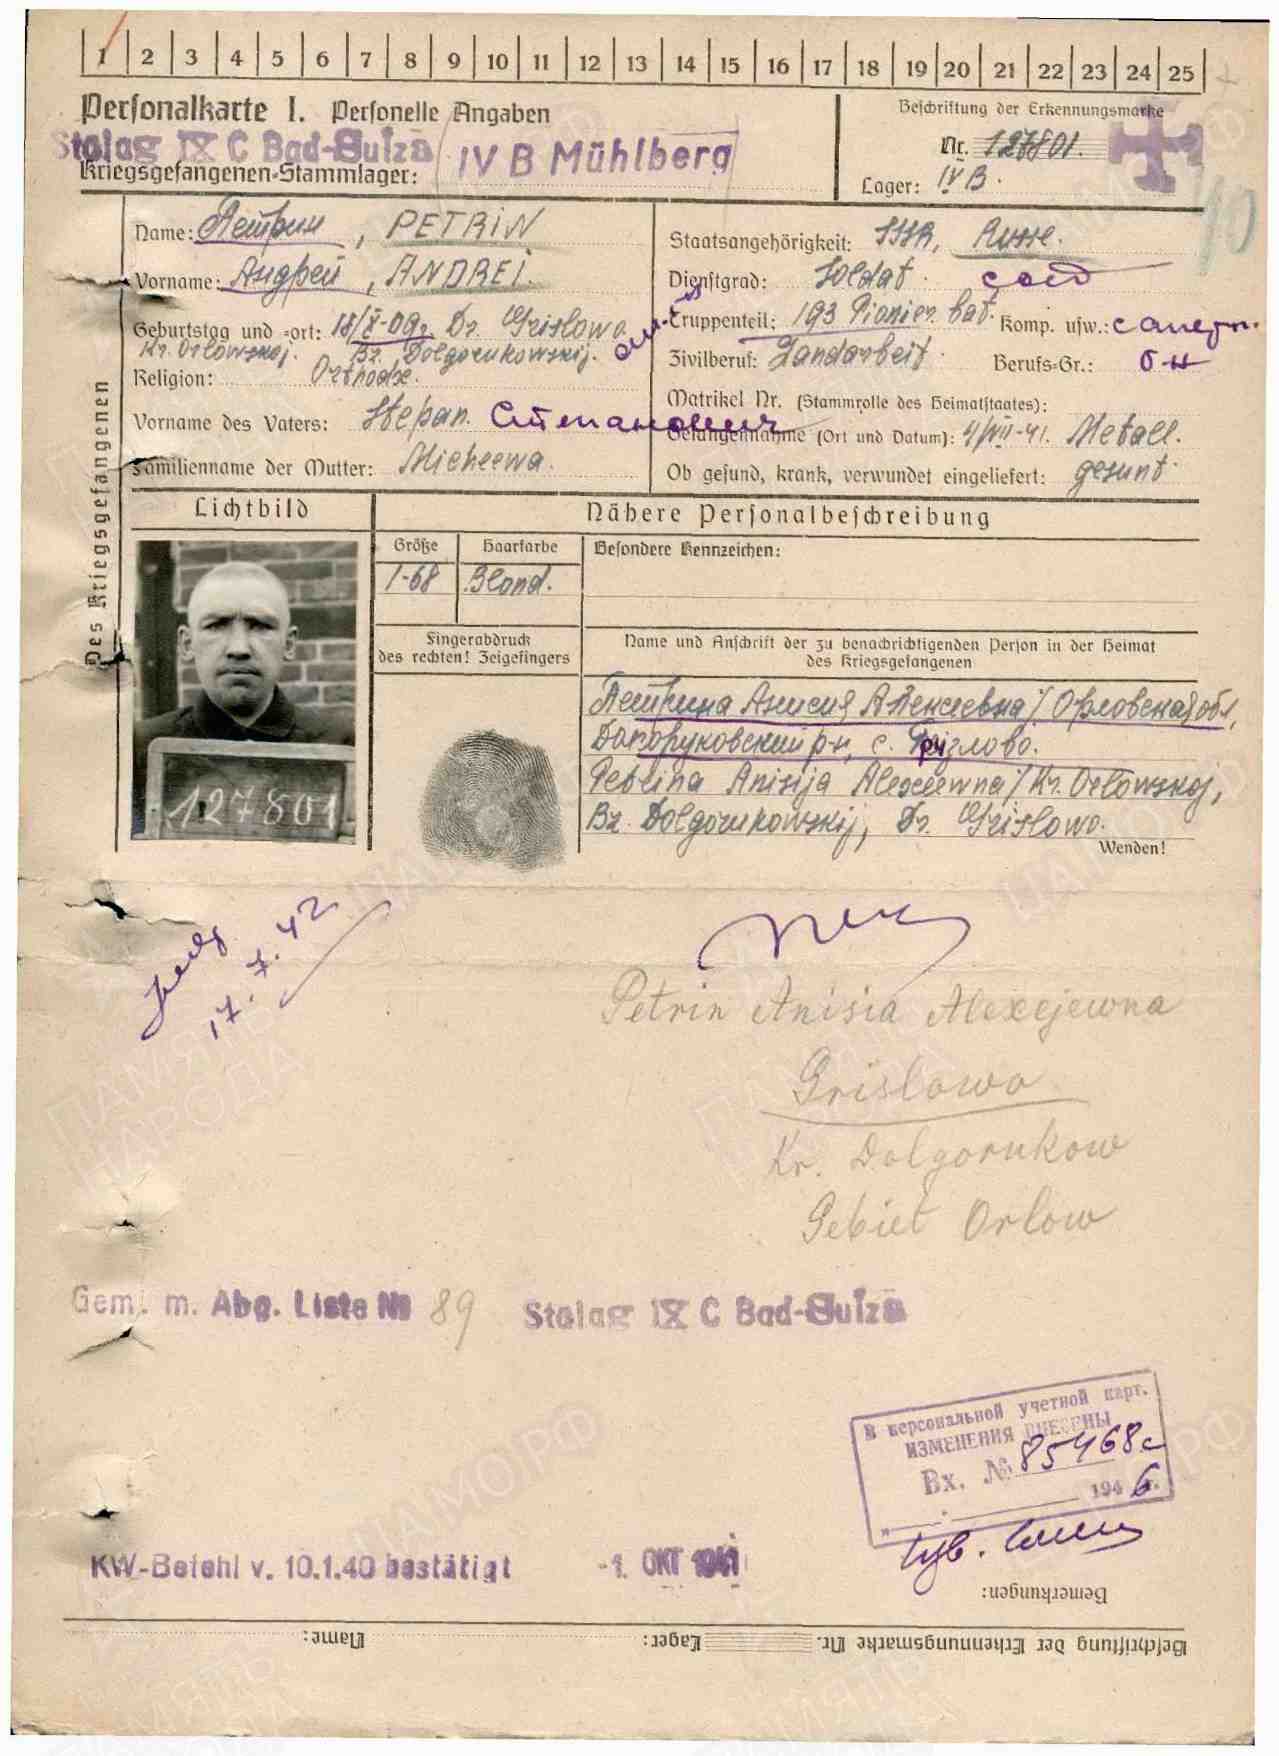 1 2 3 4 5 6 7 8 9 10 11 12 13 14 15 16 17 18 19 20 21 22 23 24 25
Personalkarte I. Personelle Angaben
Stalag IX C Bad-Sulza IV B Mühlberg
Kriegsgefangenen-Stammlager:
Beschriftung der Erkennungsmarke
Nr. 127801.
Lager: IV B.
Des Kriegsgefangenen
Name: Петрин, PETRIN
Vorname: Андрей, ANDREI.
Geburtstag und -ort: 18/X-09г. Dr. Grislowo
Kr. Orlowskoj. Bz. Dolgorukowskij.
Religion: Orthodox.
Vorname des Vaters: Stepan. Степанович
Familienname der Mutter: Micheewa.
Staatsangehörigkeit: SSSR, Russe.
Dienstgrad: Soldat. солд
Truppenteil: 193 Pionier. bat. Komp. usw.:
Zivilberuf: Landarbeit. Berufs-Gr.:
Matrikel Nr. (Stammrolle des Heimatstaates):
Gefangennahme (Ort und Datum): 4/VII-41. Metall.
Ob gesund, krank, verwundet eingeliefert: gesunt.
Lichtbild
Nähere Personalbeschreibung
Größe
Haarfarbe
Besondere Kennzeichen:
1-68
Blond.
Fingerabdruck
des rechten! Zeigefingers
Name und Anschrift der zu benachrichtigenden Person in der Heimat
des Kriegsgefangenen
Петрина Анисия Алексеевна / Орловская обл,
Долгоруковский р-н, с. Грызлово.
Petrina Anisija Alexeewna / Kr. Orlowskoj,
Bz. Dolgorukowskij, Dr. Grislowo.
127801
Wenden!
17.7.42
Petrin Anisia Alexejewna
Grislowo
Kr. Dolgorukow
Gebiet Orlow
Gem. m. Abg. Liste № 89 Stalag IX C Bad-Sulza
В персональной учетной карт.
ИЗМЕНЕНИЯ ВНЕСЕНЫ
Вх. № 85468с
1946 г.
KW-Befehl v. 10.1.40 bestätigt -1. OKT 1941
Bemerkungen:
Beschriftung der Erkennungsmarke Nr. Lager: Name:
ПАМЯТЬ НАРОДА
ЦАМО.РФ